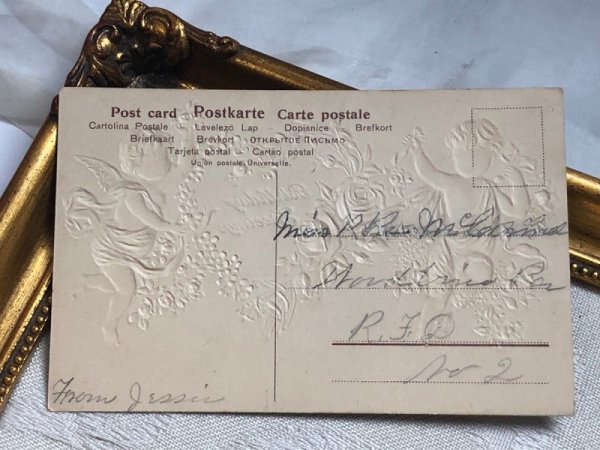 Post card Postkarte Carte postale
Cartolina Postale Levelezö Lap Dopisnice Brefkort
Briefkaart Brevkort ОТКРЫТОЕ ПИСЬМО
Tarjeta postal Cartão postal
Union postale Universelle.
Miss
R.F.D
No 2
From Jessie